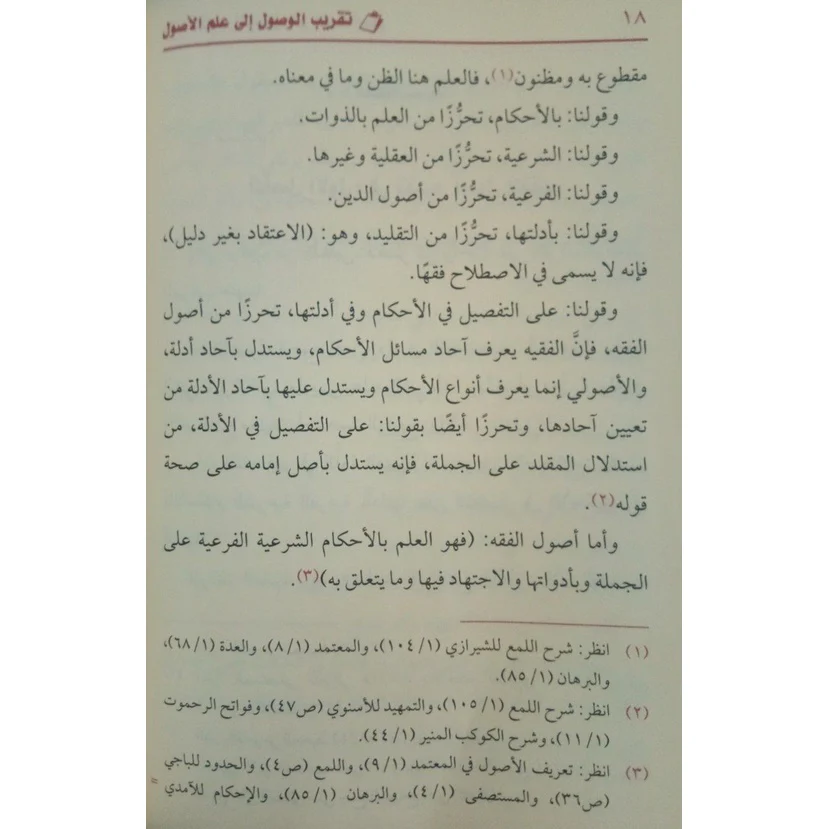 ١٨ تقريب الوصول إلى علم الأصول
مقطوع به ومظنون(١)، فالعلم هنا الظن وما في معناه.
وقولنا: بالأحكام، تحرُّزًا من العلم بالذوات.
وقولنا: الشرعية، تحرُّزًا من العقلية وغيرها.
وقولنا: الفرعية، تحرُّزًا من أصول الدين.
وقولنا: بأدلتها، تحرُّزًا من التقليد، وهو: (الاعتقاد بغير دليل)،
فإنه لا يسمى في الاصطلاح فقهًا.
وقولنا: على التفصيل في الأحكام وفي أدلتها، تحرزًا من أصول
الفقه، فإنَّ الفقيه يعرف آحاد مسائل الأحكام، ويستدل بآحاد أدلة،
والأصولي إنما يعرف أنواع الأحكام ويستدل عليها بآحاد الأدلة من
تعيين آحادها، وتحرزًا أيضًا بقولنا: على التفصيل في الأدلة، من
استدلال المقلد على الجملة، فإنه يستدل بأصل إمامه على صحة
قوله(٢).
وأما أصول الفقه: (فهو العلم بالأحكام الشرعية الفرعية على
الجملة وبأدواتها والاجتهاد فيها وما يتعلق به)(٣).
(١) انظر: شرح اللمع للشيرازي (١/ ١٠٤)، والمعتمد (٨/١)، والعدة (٦٨/١)،
والبرهان (١/ ٨٥).
(٢) انظر: شرح اللمع (١/ ١٠٥)، والتمهيد للأسنوي (ص٤٧)، وفواتح الرحموت
(١/ ١١)، وشرح الكوكب المنير (١/ ٤٤).
(٣) انظر: تعريف الأصول في المعتمد (٩/١)، واللمع (ص٤)، والحدود للباجي
(ص٣٦)، والمستصفى (٤/١)، والبرهان (١/ ٨٥)، والإحكام للآمدي =